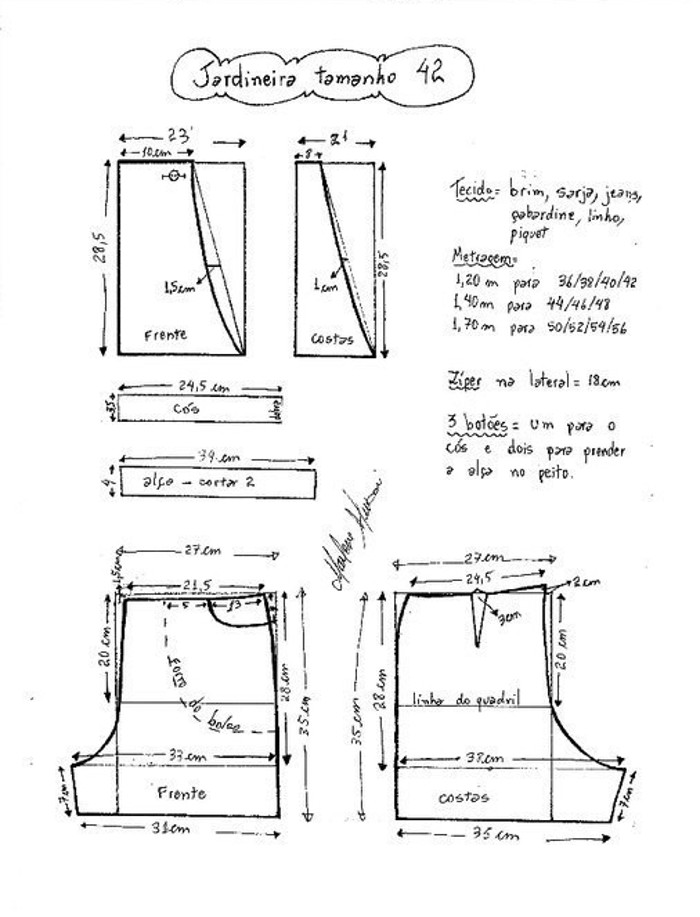 Jardineira tamanho 42
23
10 cm
28,5
1,5cm
Frente
21
8
28,5
1 cm
costas
Tecido = brim, sarja, jeans,
gabardine, linho,
piquet
Metragem =
1,20 m para 36/38/40/42
1,40 m para 44/46/48
1,70 m para 50/52/54/56
Zíper na lateral = 18 cm
3 botões = um para o
cós e dois para prender
a alça no peito.
24,5 cm
3,5
cós
4
alça - cortar 2
27 cm
1,5cm
21,5
5
13
20 cm
forro
do
bolso
28 cm
35 cm
33 cm
7 cm
Frente
31 cm
27 cm
24,5
2 cm
3cm
20 cm
35 cm
28 cm
linha do quadril
38 cm
7 cm
costas
35 cm